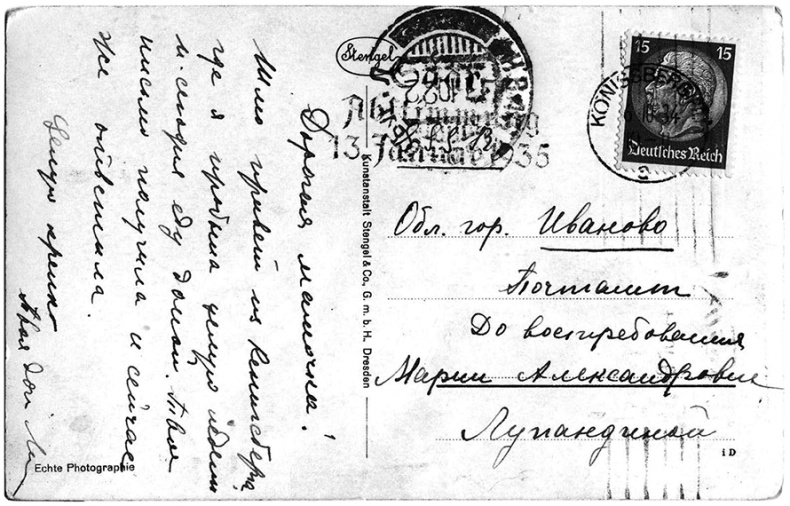 Stengel
Дорогая мамочка!
Шлю привет из Кенигсберга,
где я пробыла целую неделю
и сегодня еду домой. Твое
письмо получила и сейчас
же ответила.
Целую крепко
Твоя
Echte Photographie
Kunstanstalt Stengel & Co., G. m. b. H. Dresden
Abstimmung
13. Januar 1935
15 15
Deutsches Reich
KÖNIGSBERG
Обл. гор. Иваново
Почтамт
До востребования
Марии Александровне
Лупандиной
1 D